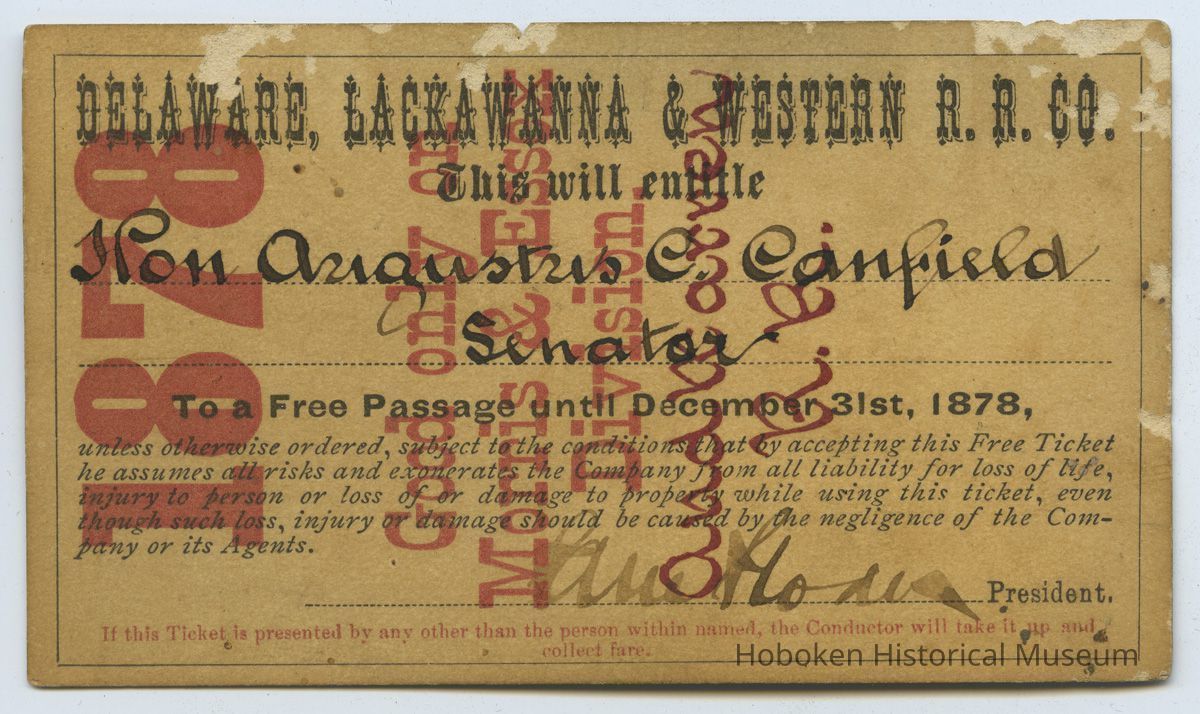 DELAWARE, LACKAWANNA & WESTERN R. R. CO.
This will entitle
Hon Augustus C. Canfield
Senator
To a Free Passage until December 31st, 1878,
unless otherwise ordered, subject to the conditions that by accepting this Free Ticket
he assumes all risks and exonerates the Company from all liability for loss of life,
injury to person or loss of or damage to property while using this ticket, even
though such loss, injury or damage should be caused by the negligence of the Com-
pany or its Agents.
Sam Sloan
President.
If this Ticket is presented by any other than the person within named, the Conductor will take it up and
collect fare.
1878
Good only on
Morris & Essex
Division.
and Warren
R. R.
Hoboken Historical Museum